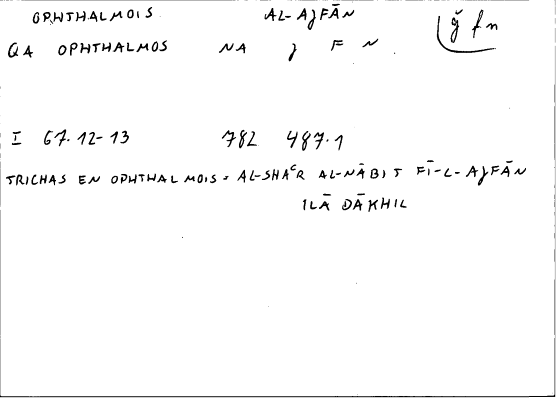 OPHTHALMOIS AL-AJFĀN ǧ fn
QA OPHTHALMOS NA J F N
I 67.12-13 782 487.1
TRICHAS EN OPHTHALMOIS = AL-SHAᶜR AL-NĀBIT FĪ-L-AJFĀN
ILĀ DĀKHIL